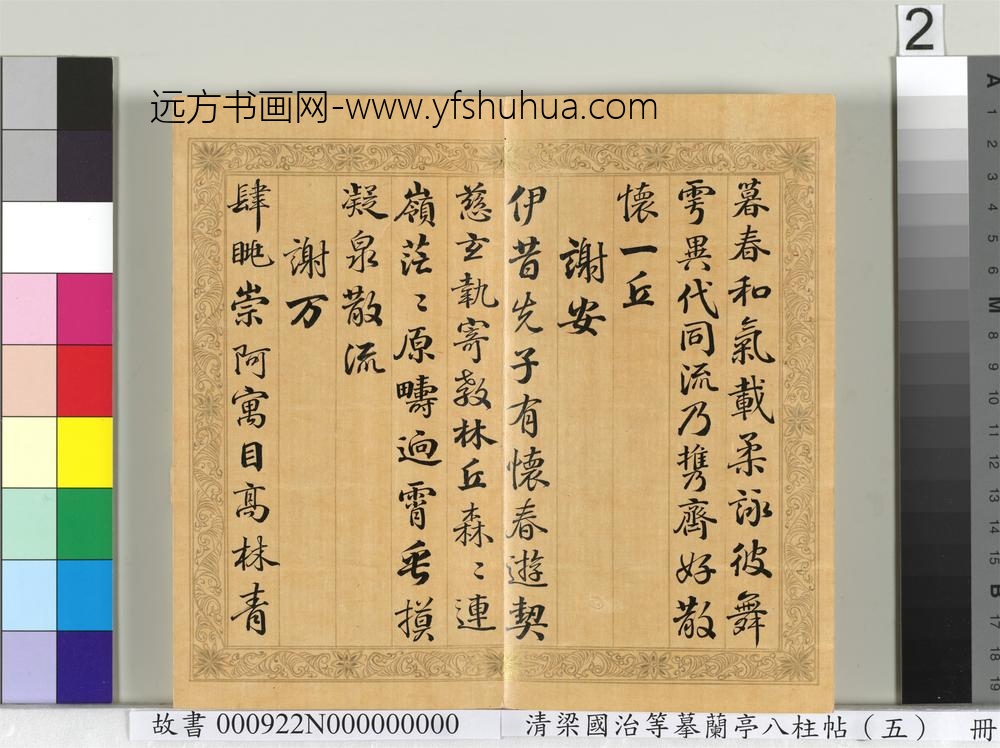 远方书画网-www.yfshuhua.com
2
暮春和氣載柔詠彼舞
雩異代同流乃攜齊好散
懷一丘
謝安
伊昔先子有懷春遊契
慈玄執寄敖林丘森〻連
嶺茫〻原疇逈霄垂摸
凝泉散流
謝万
肆眺崇阿寓目高林青
A 1 2 3 4 5 6 M 8 9 10 11 12 13 14 15 B 17 18 19
故書 000922N000000000
清梁國治等摹蘭亭八柱帖（五） 冊